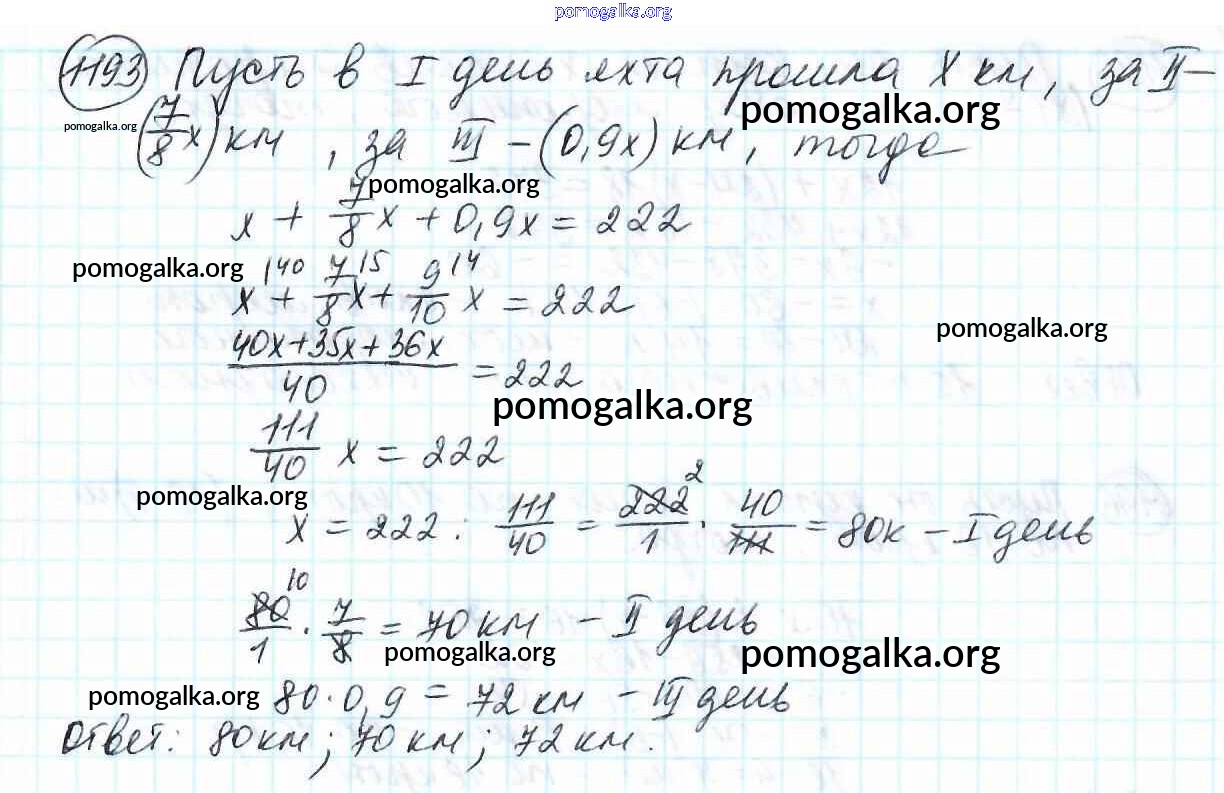 pomogalka.org
1193 Пусть в I день яхта прошла x км, за II –
pomogalka.org
pomogalka.org (7/8 x) км, за III – (0,9x) км, тогда
pomogalka.org
x + 7/8 x + 0,9x = 222
pomogalka.org
x\40 + 7/8\5 x + 9/10\4 x = 222
pomogalka.org
(40x+35x+36x)/40 = 222
pomogalka.org
111/40 x = 222
pomogalka.org
x = 222 : 111/40 = 222/1 2 · 40/111 = 80к – I день
80/1 10 · 7/8 = 70 км – II день
pomogalka.org pomogalka.org
pomogalka.org 80 · 0,9 = 72 км – III день
Ответ: 80 км; 70 км; 72 км.